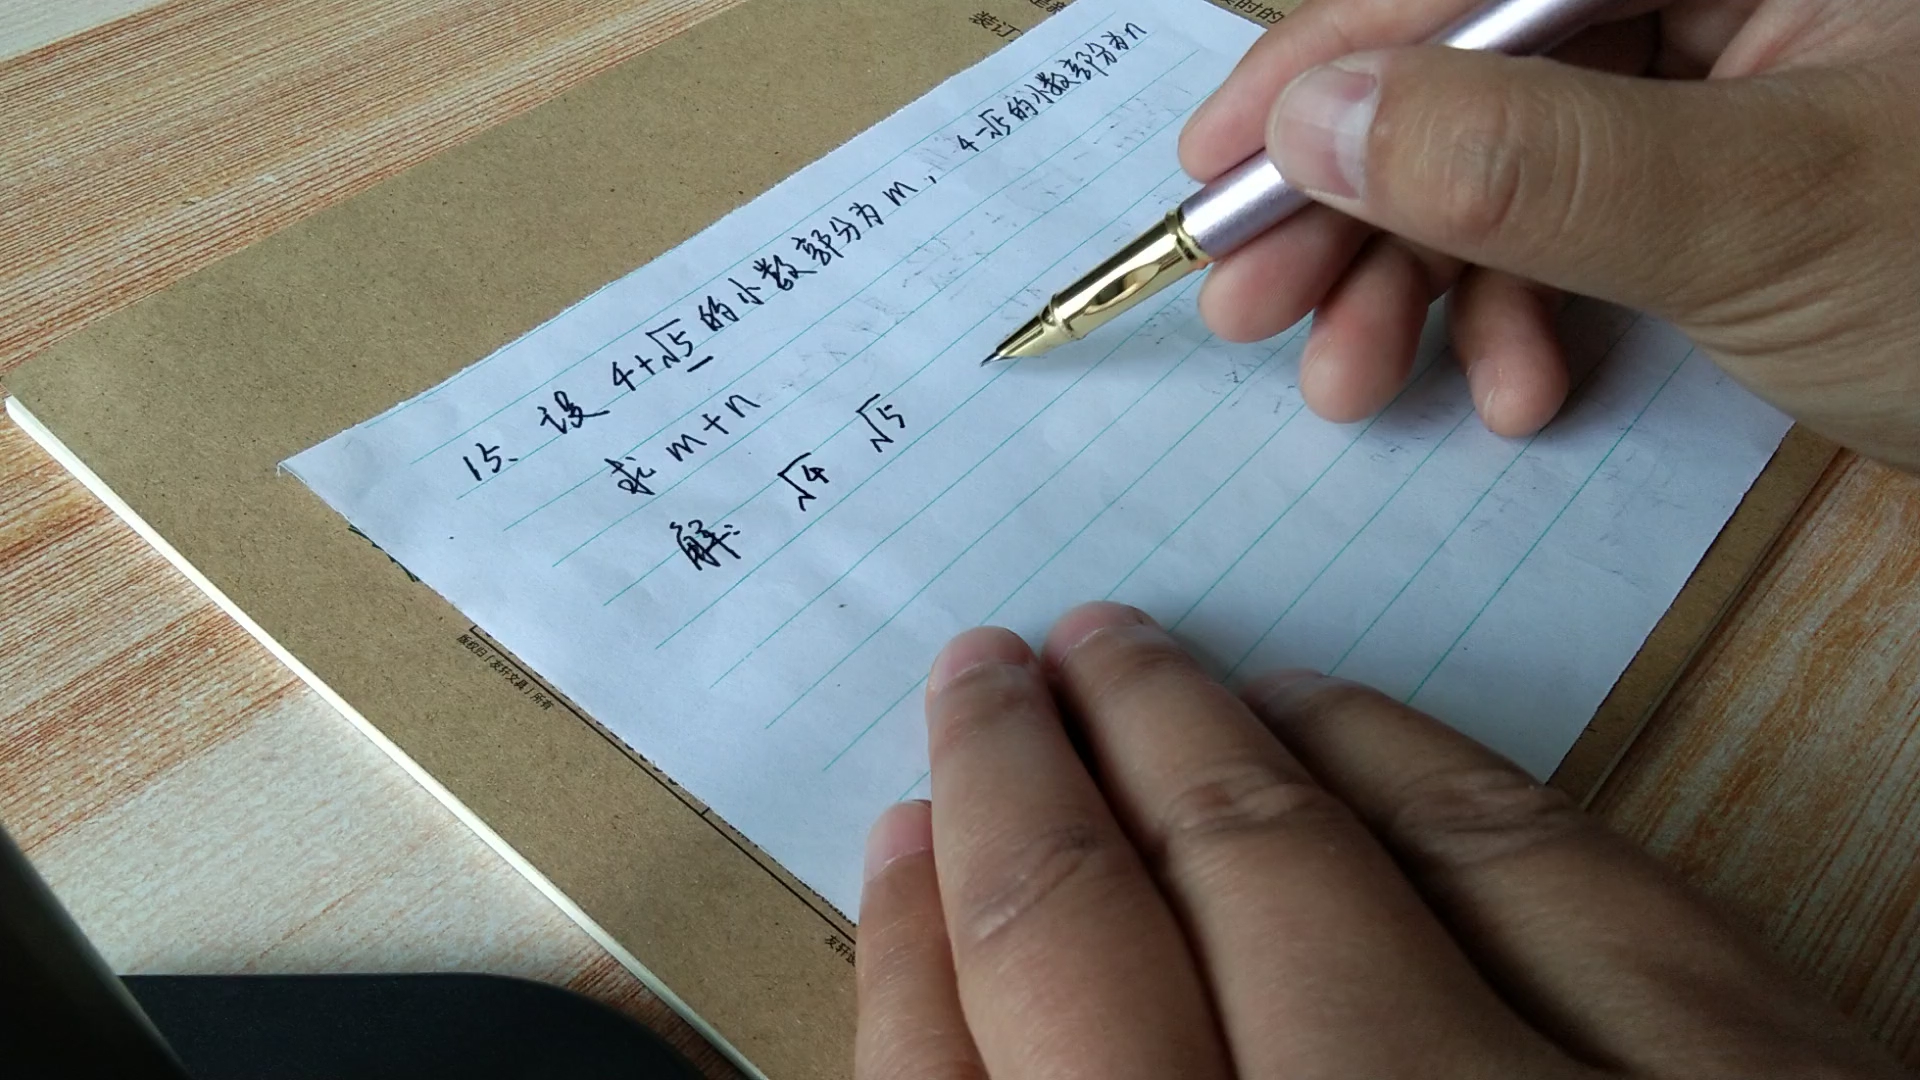 装订
15、设 4+√5 的小数部分为m，4-√5的小数部分为n
求 m+n
解: √4 √5
友轩文具
所有